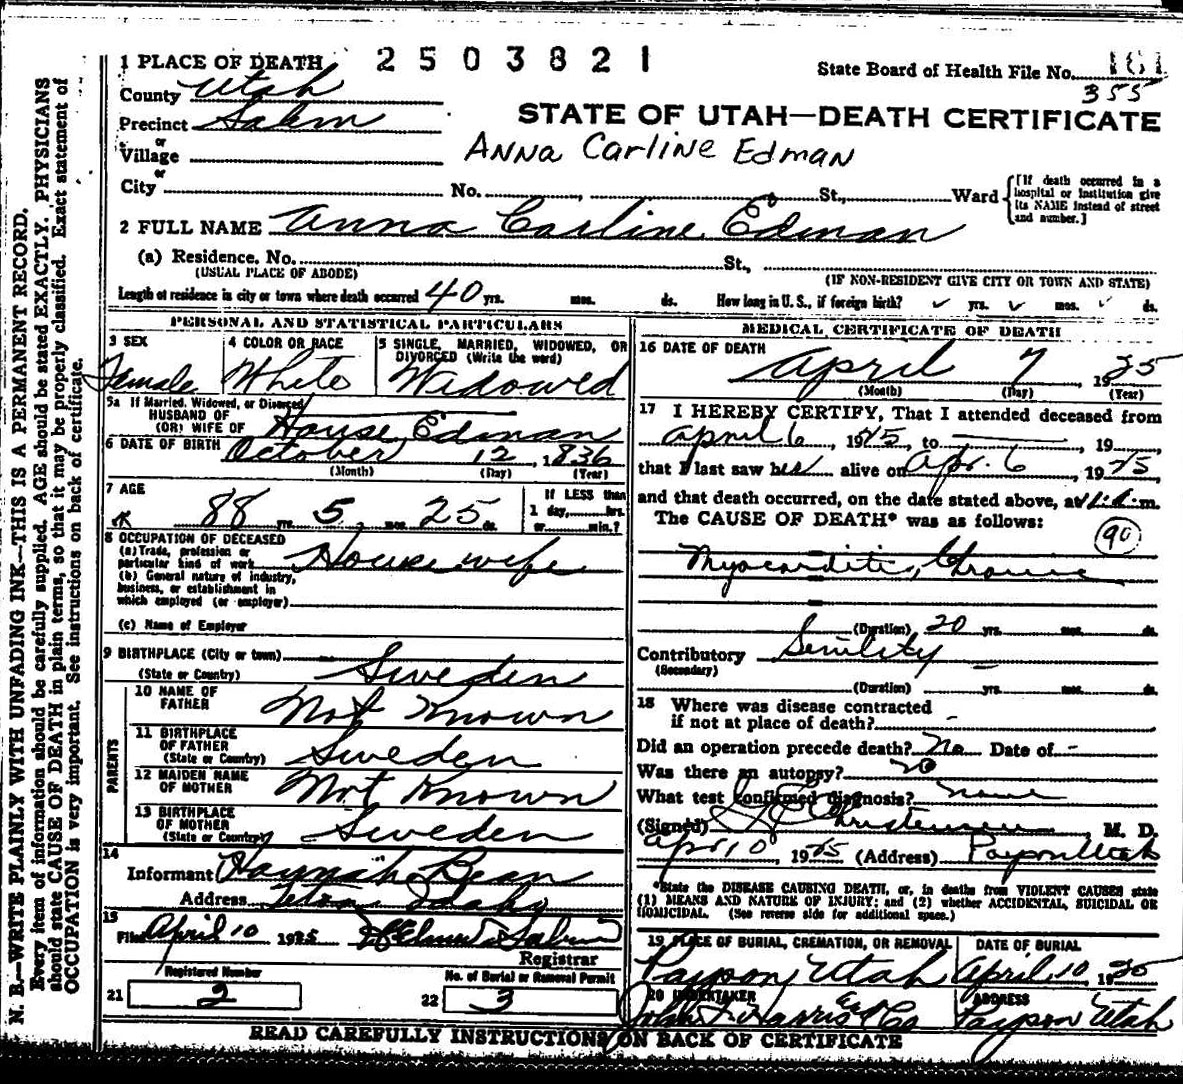 1 PLACE OF DEATH 2503821 State Board of Health File No. 161
County Utah 355
Precinct Salem STATE OF UTAH—DEATH CERTIFICATE
or
Village ANNA Carline Edman
or
City No. St., Ward [If death occurred in a hospital or institution give its NAME instead of street and number.]
2 FULL NAME Anna Carline Edman
(a) Residence. No. St.,
(USUAL PLACE OF ABODE) (IF NON-RESIDENT GIVE CITY OR TOWN AND STATE)
Length of residence in city or town where death occurred 40 yrs. mos. ds. How long in U. S., if foreign birth? yrs. mos. ds.
PERSONAL AND STATISTICAL PARTICULARS
3 SEX
Female
4 COLOR OR RACE
White
5 SINGLE, MARRIED, WIDOWED, OR
DIVORCED (Write the word)
Widowed
5a If Married, Widowed, or Divorced
HUSBAND OF
(OR) WIFE OF Edman
6 DATE OF BIRTH October 12, 1836
(Month) (Day) (Year)
7 AGE If LESS than
88 yrs. 5 mos. 25 ds. 1 day, hrs.
or min.?
8 OCCUPATION OF DECEASED
(a) Trade, profession or
particular kind of work Housewife
(b) General nature of industry,
business, or establishment in
which employed (or employer)
(c) Name of Employer
9 BIRTHPLACE (City or town)
(State or Country) Sweden
PARENTS
10 NAME OF
FATHER Not Known
11 BIRTHPLACE
OF FATHER
(State or Country) Sweden
12 MAIDEN NAME
OF MOTHER Not Known
13 BIRTHPLACE
OF MOTHER
(State or Country) Sweden
14
Informant Hannah Bean
Address Teton Idaho
15
Filed April 10 1925
Registrar
Registered Number No. of Burial or Removal Permit
21 2 22 3
MEDICAL CERTIFICATE OF DEATH
16 DATE OF DEATH
April 7, 1925
(Month) (Day) (Year)
17 I HEREBY CERTIFY, That I attended deceased from
April 6, 1925, to , 19
that I last saw her alive on Apr. 6 1925
and that death occurred, on the date stated above, at m.
The CAUSE OF DEATH* was as follows:
90
Myocarditis, Chronic
(Duration) 20 yrs. mos. ds.
Contributory Senility
(Secondary)
(Duration) yrs. mos. ds.
18 Where was disease contracted
if not at place of death? -
Did an operation precede death? No Date of -
Was there an autopsy? no
What test confirmed diagnosis? none
(Signed) Christensen, M. D.
Apr 10, 1925 (Address) Payson Utah
*State the DISEASE CAUSING DEATH, or, in deaths from VIOLENT CAUSES state
(1) MEANS AND NATURE OF INJURY; and (2) whether ACCIDENTAL, SUICIDAL OR
HOMICIDAL. (See reverse side for additional space.)
19 PLACE OF BURIAL, CREMATION, OR REMOVAL DATE OF BURIAL
Payson, Utah April 10, 1925
20 UNDERTAKER ADDRESS
& Co Payson Utah
READ CAREFULLY INSTRUCTIONS ON BACK OF CERTIFICATE
N. B.—WRITE PLAINLY WITH UNFADING INK—THIS IS A PERMANENT RECORD.
Every item of information should be carefully supplied. AGE should be stated EXACTLY. PHYSICIANS
should state CAUSE OF DEATH in plain terms, so that it may be properly classified. Exact statement of
OCCUPATION is very important. See instructions on back of certificate.